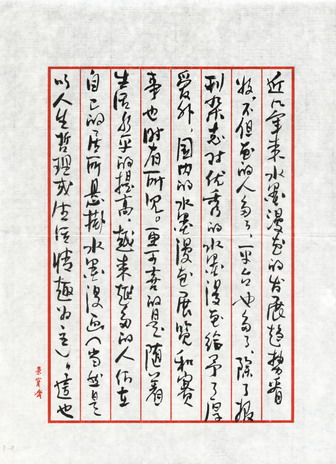 近几年来水墨漫画的发展趋势看
好，不但画的人多了，平台也多了，除了报
刊杂志对优秀的水墨漫画给予了厚
爱外，国内的水墨漫画展览和赛
事也时有所见。更可喜的是随着
生活水平的提高，越来越多的人们在
自己的居所悬挂水墨漫画（当然是
以人生哲理或生活情趣为主），这也
荣宝斋